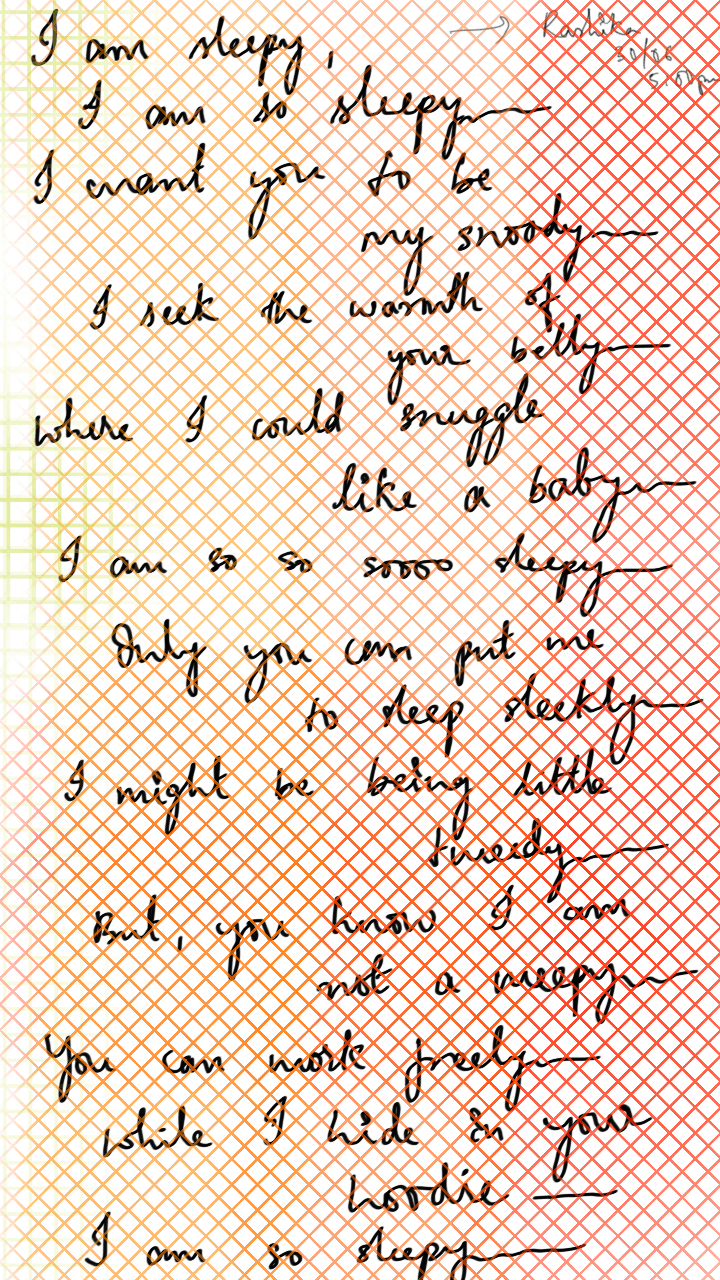 I am sleepy,
→ Rashika
30/06
5:00 pm
I am so sleepy—
I want you to be
my snoody—
I seek the warmth of
your belly—
where I could snuggle
like a baby—
I am so so soooo sleepy—
Only you can put me
to sleep sleekly—
I might be being little
tweedy—
But, you know I am
not a weepy—
You can work freely—
while I hide in your
hoodie —
I am so sleepy—